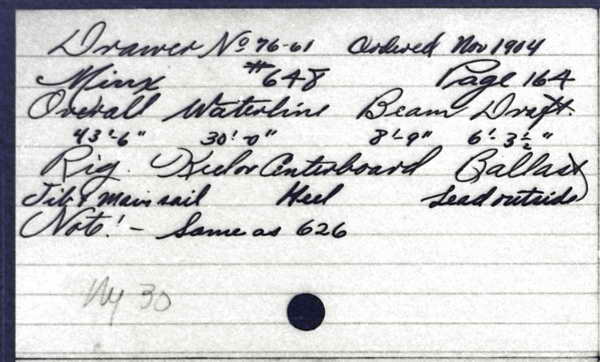 Drawer No 76-61 Ordered Nov 1904
Minx #648 Page 164
Overall Waterline Beam Draft.
43'-6" 30'-0" 8'-9" 6'-3½"
Rig. Keel or Centerboard Ballast
Jib & Mainsail Keel Lead outside
Note! - Same as 626
Ny 30